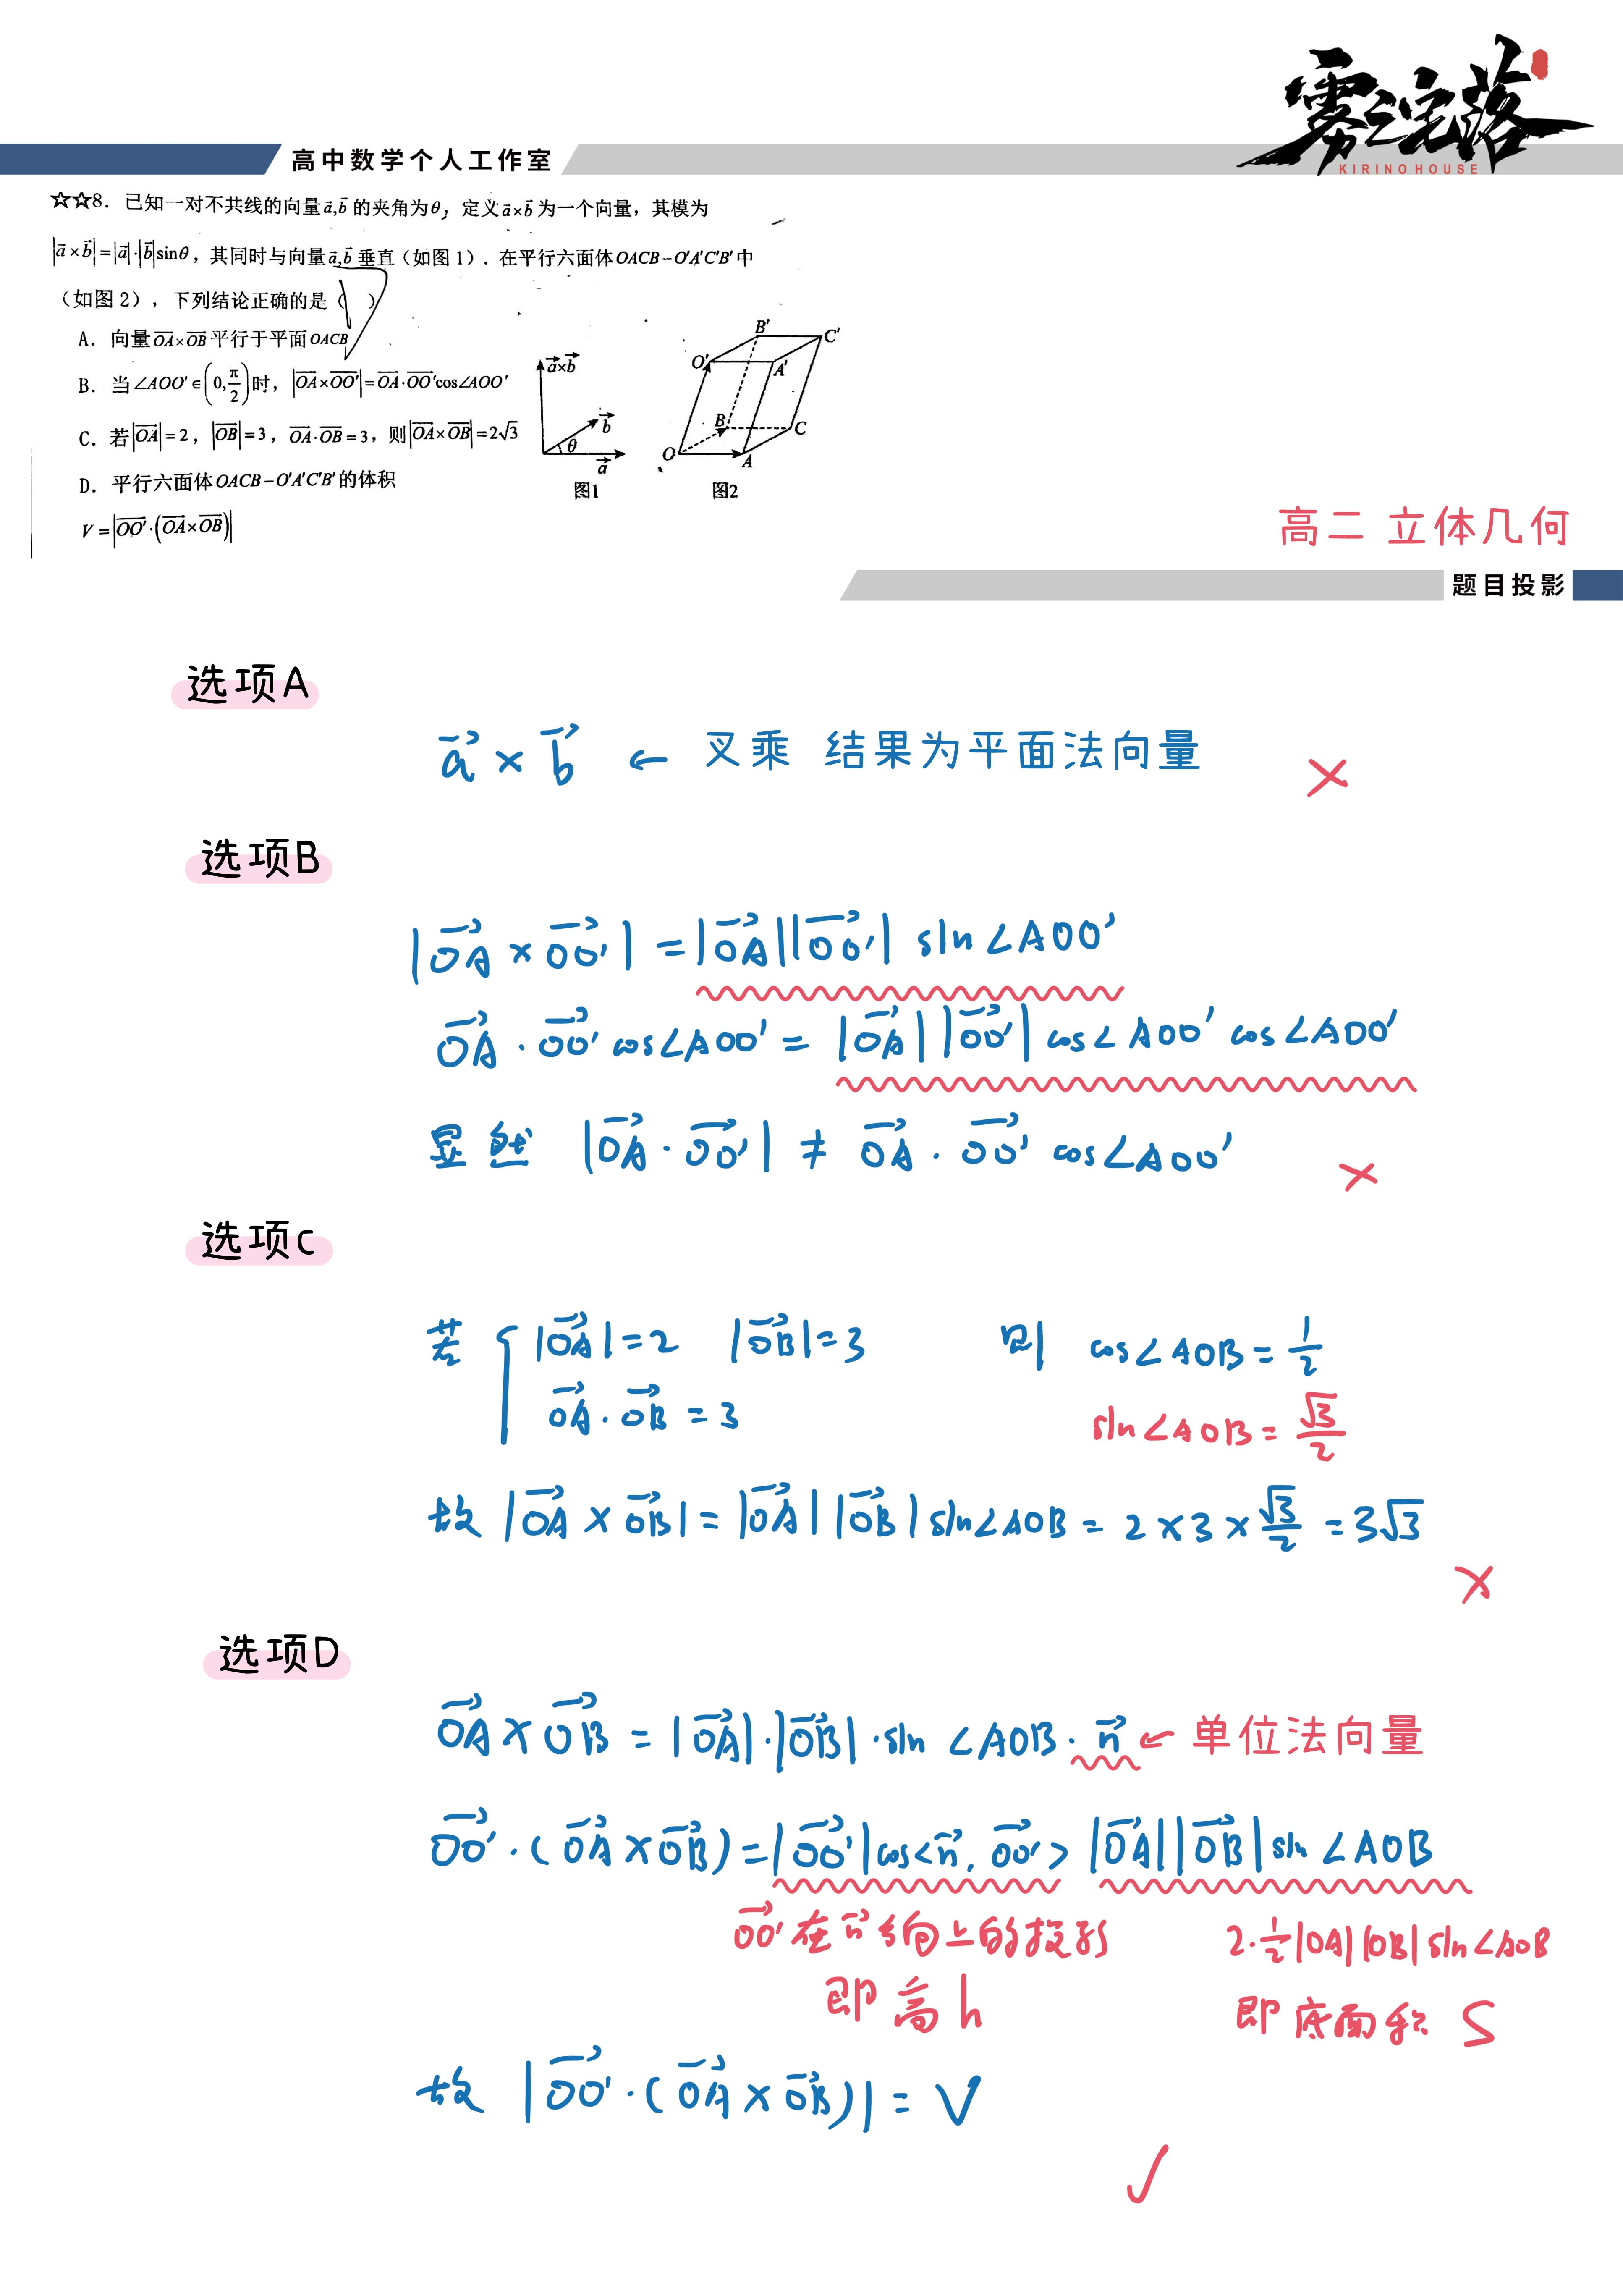 雾之宅落
KIRINO HOUSE
高中数学个人工作室
☆☆8. 已知一对不共线的向量a⃗,b⃗的夹角为θ, 定义a⃗×b⃗为一个向量, 其模为
|a⃗×b⃗|=|a⃗|·|b⃗|sinθ, 其同时与向量a⃗,b⃗垂直(如图1). 在平行六面体OACB-O'A'C'B'中
(如图2), 下列结论正确的是( )
A. 向量OA×OB平行于平面OACB
B. 当∠AOO'∈(0,π/2)时, |OA×OO'|=OA·OO'cos∠AOO'
C. 若|OA|=2, |OB|=3, OA·OB=3, 则|OA×OB|=2√3
D. 平行六面体OACB-O'A'C'B'的体积
V=|OO'·(OA×OB)|
a⃗×b⃗
b⃗
θ
a⃗
图1
B'
C'
O'
A'
B
C
O
A
图2
高二 立体几何
题目投影
选项A
a⃗ × b⃗ ← 叉乘 结果为平面法向量 ×
选项B
|OA × OO'| = |OA||OO'| sin∠AOO'
OA · OO' cos∠AOO' = |OA||OO'| cos∠AOO' cos∠AOO'
显然 |OA · OO'| ≠ OA · OO' cos∠AOO' ×
选项C
若 { |OA|=2 |OB|=3 则 cos∠AOB = 1/2
OA·OB = 3 sin∠AOB = √3/2
故 |OA × OB| = |OA||OB| sin∠AOB = 2×3×√3/2 = 3√3
×
选项D
OA × OB = |OA|·|OB|·sin∠AOB·n⃗ ← 单位法向量
OO'·(OA×OB) = |OO'|cos<n⃗, OO'> |OA||OB|sin∠AOB
OO'在n⃗方向上的投影 2·1/2|OA||OB|sin∠AOB
即高h 即底面积S
故 |OO'·(OA×OB)| = V
✓